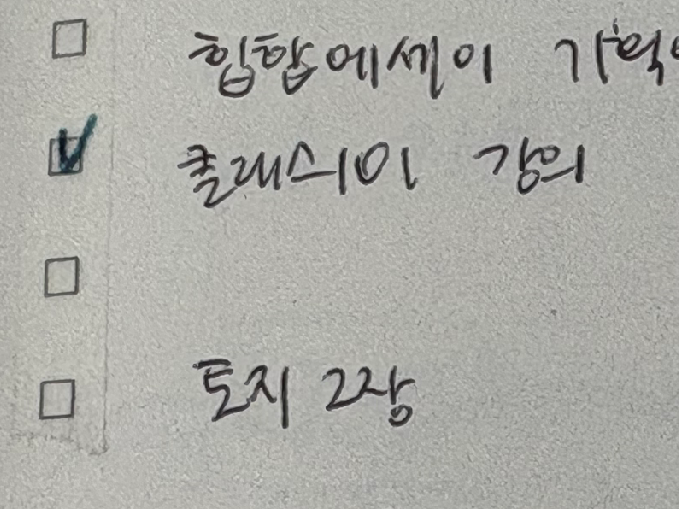 힙합에세이 기억
클래스101 강의
토지 2장